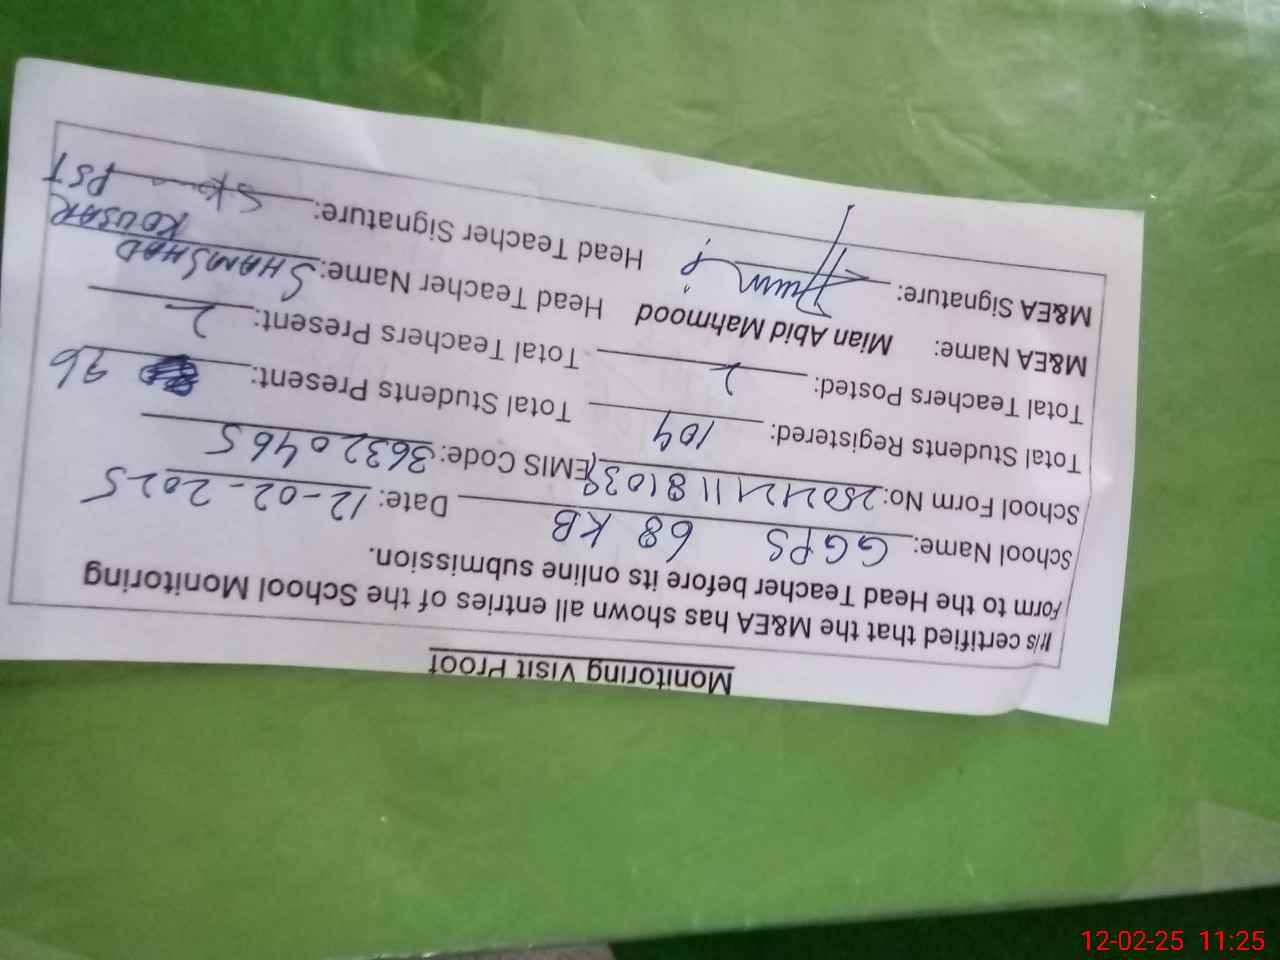 Monitoring Visit Proof
It is certified that the M&EA has shown all entries of the School Monitoring
Form to the Head Teacher before its online submission.
School Name: GGPS 68 KB Date: 12-02-2025
School Form No: EMIS Code: 36320465
Total Students Registered: 104 Total Students Present: 96
Total Teachers Posted: 2 Total Teachers Present: 2
M&EA Name: Mian Abid Mahmood Head Teacher Name: SHAMSHAD KOUSAR
M&EA Signature: Head Teacher Signature: PST
12-02-25 11:25